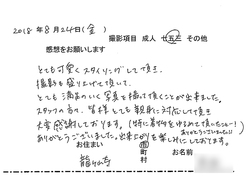 2018 年 8 月 24 日 ( 金 ) 撮影項目 成人 七五三 その他
感想をお願いします
とても可愛くスタイリングして頂き、
撮影を盛り上げて頂いて、
とても満足のいく写真を撮って頂くことが出来ました。
スタッフの方々、皆様とても親身に対応して頂き
大変感謝しております。(特に着物をゆるめて頂いたこと…!
ありがとうございました!!)
ありがとうございました。出来上がりを楽しみにしております。
お住まい 市 町 村 お名前